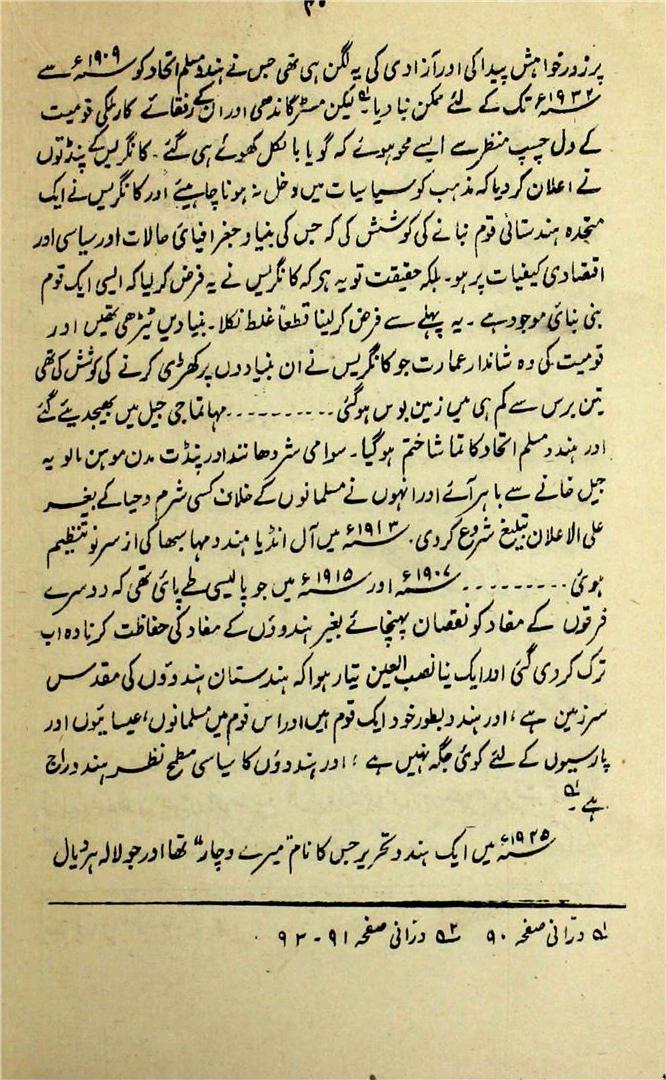 ۳۰
پر زور خواہش پیدا کی اور آزادی کی یہ لگن ہی تھی جس نے ہندو مسلم اتحاد کو ۱۹۰۹ء سے
۱۹۳۲ء تک کے لئے ممکن بنا دیا۔ لیکن مسٹر گاندھی اور ان کے رفقائے کار ملکی قومیت
کے دل چسپ منظر سے ایسے محو ہوئے کہ گویا بالکل کھوئے ہی گئے۔ کانگریس کے پنڈتوں
نے اعلان کر دیا کہ مذہب کو سیاسیات میں دخل نہ ہونا چاہیئے اور کانگریس نے ایک
متحدہ ہندستانی قوم بنانے کی کوشش کی کہ جس کی بنیاد جغرافیائی حالات اور سیاسی اور
اقتصادی کیفیات پر ہو۔ بلکہ حقیقت تو یہ ہے کہ کانگریس نے یہ فرض کر لیا کہ ایسی ایک قوم
بنی بنائی موجود ہے۔ یہ پہلے سے فرض کر لینا قطعاً غلط نکلا۔ بنیادیں ٹیڑھی تھیں اور
قومیت کی وہ شاندار عمارت جو کانگریس نے ان بنیادوں پر کھڑی کرنے کی کوشش کی تھی
تین برس سے کم ہی میں زمین بوس ہو گئی ۔۔۔۔۔۔۔۔۔ مہاتما جی جیل میں بھیجدیئے گئے
اور ہندو مسلم اتحاد کا تماشا ختم ہو گیا۔ سوامی شردھانند اور پنڈت مدن موہن مالویہ
جیل خانے سے باہر آئے اور انہوں نے مسلمانوں کے خلاف کسی شرم و حیا کے بغیر
علی الاعلان تبلیغ شروع کر دی۔ ۱۹۱۳ء میں آل انڈیا ہندو مہا سبھا کی از سر نو تنظیم
ہوئی ۔۔۔۔۔۔۔۔۔ ۱۹۰۷ء اور ۱۹۱۵ء میں جو پالیسی طے پائی تھی کہ دوسرے
فرقوں کے مفاد کو نقصان پہنچائے بغیر ہندوؤں کے مفاد کی حفاظت کرنا وہ اب
ترک کر دی گئی اور ایک نیا نصب العین تیار ہوا کہ ہندستان ہندوؤں کی مقدس
سرزمین ہے، اور ہندو بطور خود ایک قوم ہیں اور اس قوم میں مسلمانوں، عیسائیوں اور
پارسیوں کے لئے کوئی جگہ نہیں ہے، اور ہندوؤں کا سیاسی مطمح نظر ہندو راج
ہے۔
۱۹۲۵ء میں ایک ہندو تحریر جس کا نام "میرے وچار" تھا اور جو لالہ ہر دیال
۱ درّانی صفحہ ۹۰ ۲ درّانی صفحہ ۹۱ - ۹۳ .